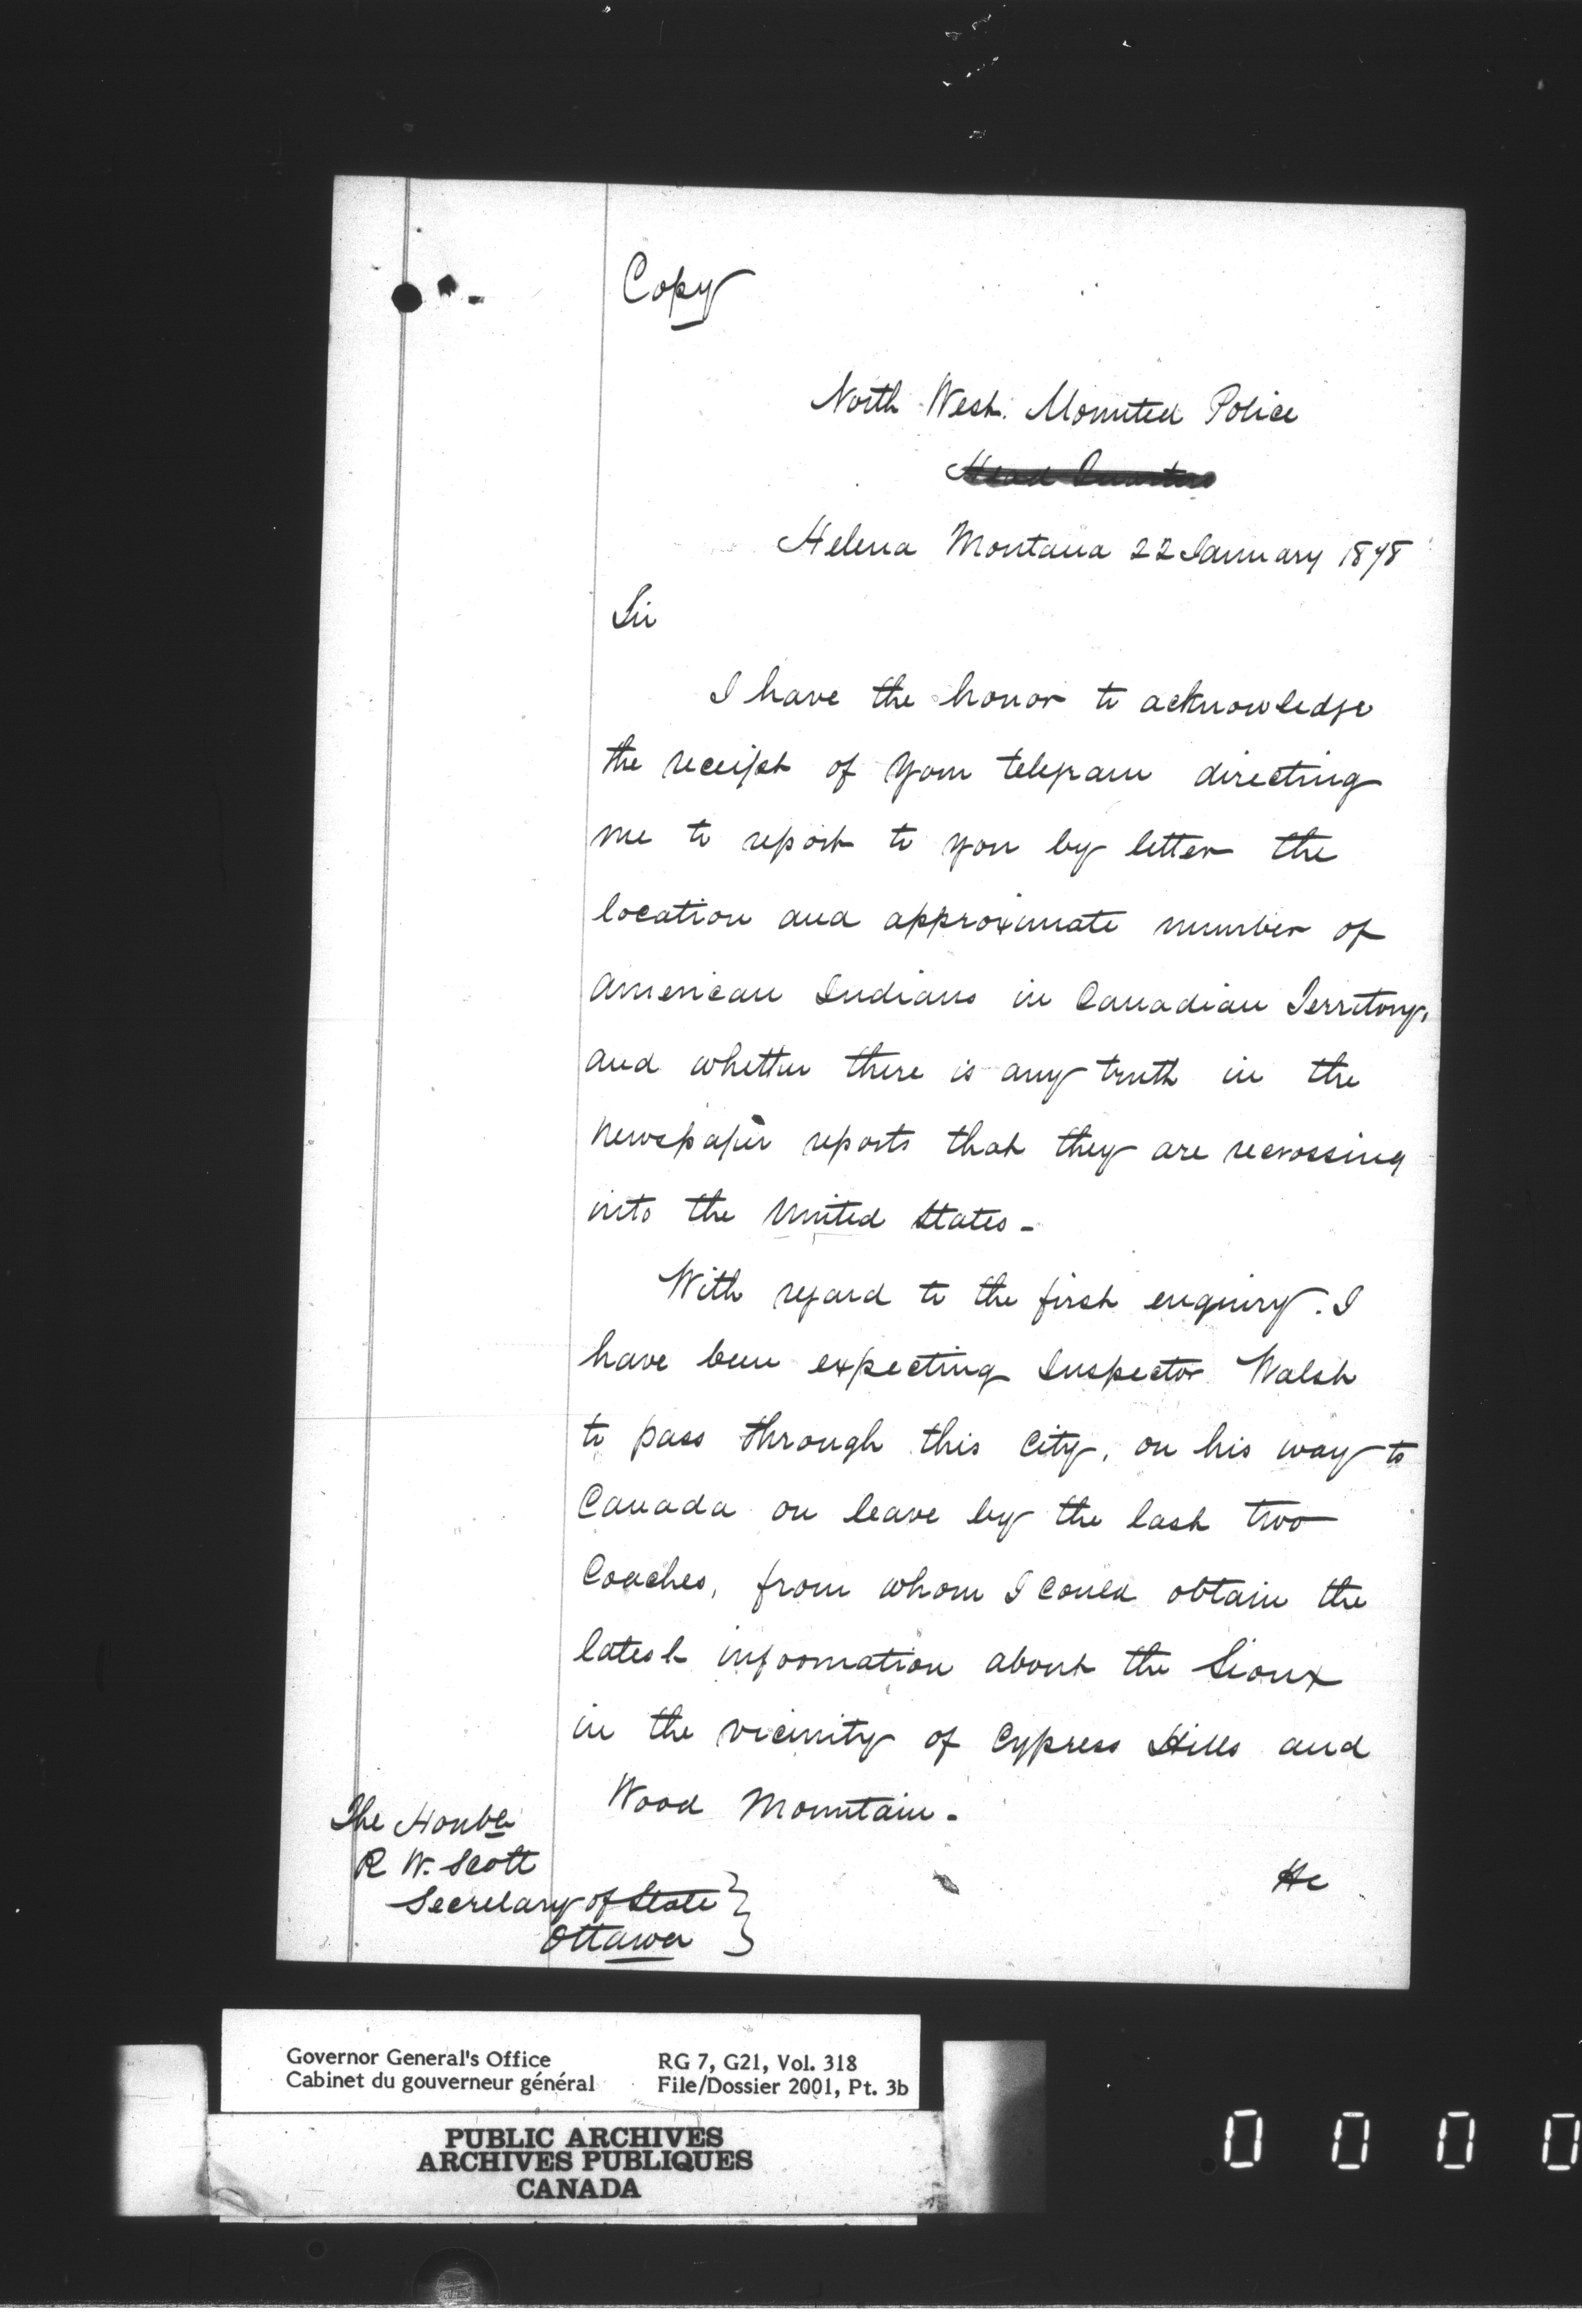 Copy
North West. Mounted Police
Head Quarters
Helena Montana 22 January 1878
Sir
I have the honor to acknowledge
the receipt of your telegram directing
me to report to you by letter the
location and approximate number of
American Indians in Canadian Territory,
and whether there is any truth in the
newspaper reports that they are recrossing
into the United States -
With regard to the first enquiry. I
have been expecting Inspector Walsh
to pass through this City, on his way to
Canada on leave by the last two
Coaches, from whom I could obtain the
latest information about the Sioux
in the vicinity of Cypress Hills and
Wood Mountain -
He
The Honble
R W. Scott
Secretary of State
Ottawa
Governor General's Office
Cabinet du gouverneur général
RG 7, G21, Vol. 318
File/Dossier 2001, Pt. 3b
PUBLIC ARCHIVES
ARCHIVES PUBLIQUES
CANADA
0 0 0 0